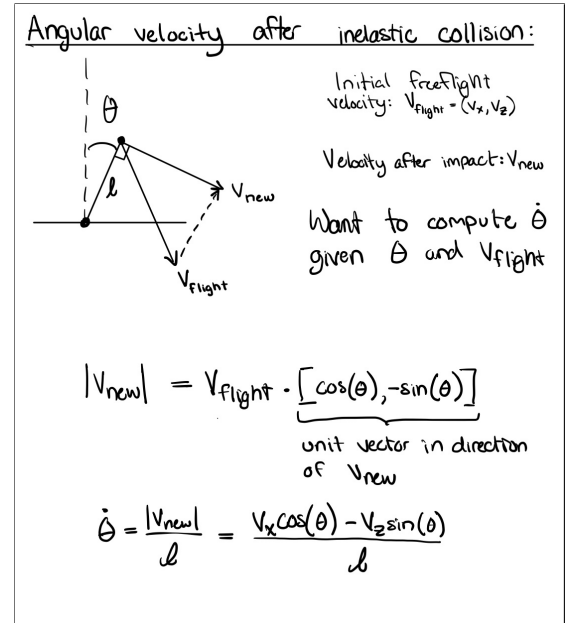 Angular velocity after inelastic collision:
Initial freeflight
velocity: V_flight = (V_x, V_z)
θ
Velocity after impact: V_new
l
V_new
Want to compute θ̇
given θ and V_flight
V_flight
|V_new| = V_flight · [cos(θ), -sin(θ)]
unit vector in direction
of V_new
θ̇ = |V_new| / l = (V_x cos(θ) - V_z sin(θ)) / l